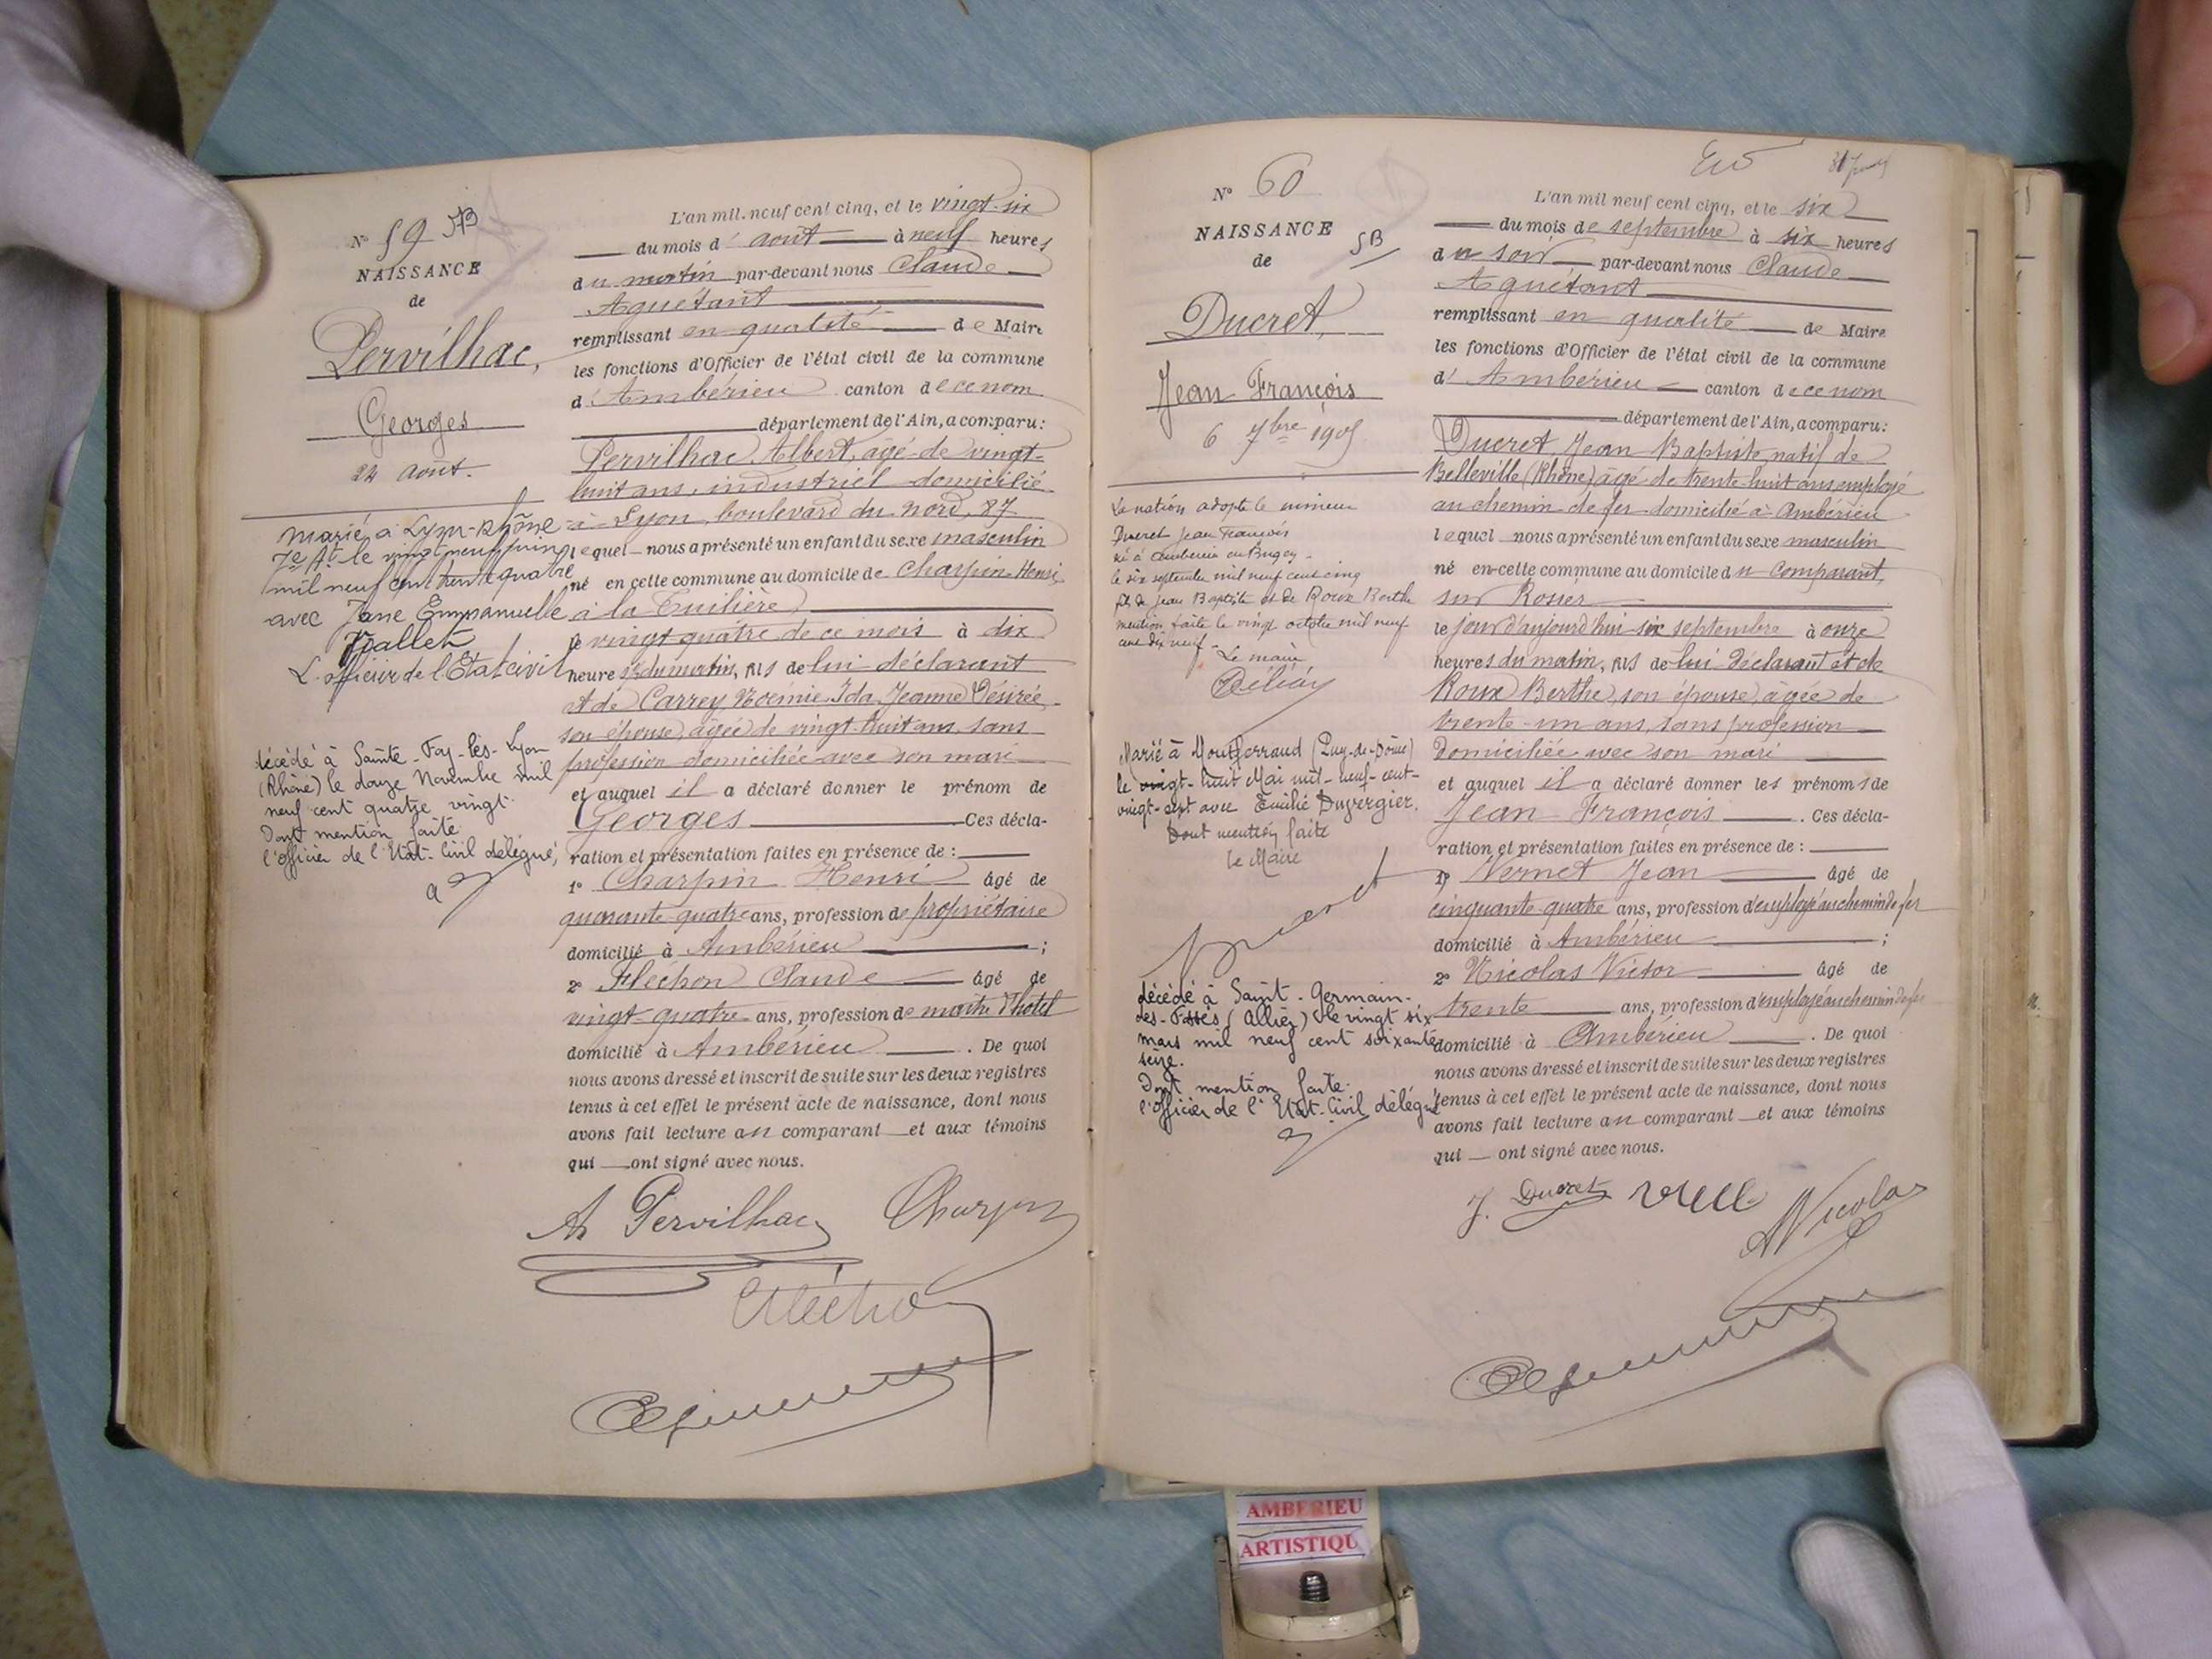 N° 59 5B
NAISSANCE
de
Pervilhac,
Georges
24 août.
Marié à Lyon-Rhône
7e At le vingt neuf juin
mil neuf cent trente quatre
avec Jane Emmanuelle
Vallet
L'officier de l'Etat civil
décédé à Sainte-Foy-lès-Lyon
(Rhône) le douze Novembre mil
neuf cent quatre vingt.
Dont mention faite
l'officier de l'Etat-Civil délégué,
L'an mil neuf cent cinq, et le vingt-six
du mois d'août à neuf heures
du matin par-devant nous Claude
Aguétant
remplissant en qualité de Maire
les fonctions d'Officier de l'état civil de la commune
d'Ambérieu canton de ce nom
département de l'Ain, a comparu:
Pervilhac, Albert, âgé de vingt-
huit ans, industriel domicilié
à Lyon, boulevard du Nord, 87
lequel nous a présenté un enfant du sexe masculin
né en cette commune au domicile de Charpin Henri
à la Tuilière
le vingt quatre de ce mois à dix
heures du matin, fils de lui déclarant
et de Carrey Noémie Ida Jeanne Désirée,
son épouse, âgée de vingt-huit ans, sans
profession domiciliée avec son mari
et auquel il a déclaré donner le prénom de
Georges Ces décla-
ration et présentation faites en présence de :
1° Charpin Henri âgé de
quarante-quatre ans, profession de propriétaire
domicilié à Ambérieu ;
2° Fléchon Claude âgé de
vingt-quatre ans, profession de maître d'hôtel
domicilié à Ambérieu . De quoi
nous avons dressé et inscrit de suite sur les deux registres
tenus à cet effet le présent acte de naissance, dont nous
avons fait lecture au comparant et aux témoins
qui ont signé avec nous.
A Pervilhac Charpin
N° 60
NAISSANCE 5B
de
Ducret,
Jean François
6 7bre 1905
La nation adopte le mineur
Ducret Jean François
né à Ambérieu en Bugey
le six septembre mil neuf cent cinq
fils de Jean Baptiste et de Roux Berthe
mention faite le vingt octobre mil neuf
cent dix neuf - Le maire
Marié à Montferrand (Puy-de-Dôme)
le vingt-huit Mai mil-neuf-cent-
vingt-sept avec Emilie Duvergier.
Dont mention faite
le Maire
décédé à Saint-Germain-
des-Fossés (Allier) le vingt six
mars mil neuf cent soixante
seize.
Dont mention faite.
l'officier de l'Etat-Civil délégué
L'an mil neuf cent cinq, et le six
du mois de septembre à six heures
du soir par-devant nous Claude
Aguétant
remplissant en qualité de Maire
les fonctions d'Officier de l'état civil de la commune
d'Ambérieu canton de ce nom
département de l'Ain, a comparu:
Ducret, Jean Baptiste, natif de
Belleville (Rhône) âgé de trente-huit ans employé
au chemin de fer domicilié à Ambérieu
lequel nous a présenté un enfant du sexe masculin
né en cette commune au domicile du comparant,
sur
le jour d'aujourd'hui six septembre à onze
heures du matin, fils de lui déclarant et de
Roux Berthe, son épouse, âgée de
trente-un ans, sans profession
domiciliée avec son mari
et auquel il a déclaré donner les prénoms de
Jean François . Ces décla-
ration et présentation faites en présence de :
1° Vernet Jean âgé de
cinquante-quatre ans, profession d'employé au chemin de fer
domicilié à Ambérieu ;
2° Nicolas Victor âgé de
trente ans, profession d'employé au chemin de fer
domicilié à Ambérieu . De quoi
nous avons dressé et inscrit de suite sur les deux registres
tenus à cet effet le présent acte de naissance, dont nous
avons fait lecture au comparant et aux témoins
qui ont signé avec nous.
J. Ducret Nicolas
AMBERIEU
ARTISTIQU